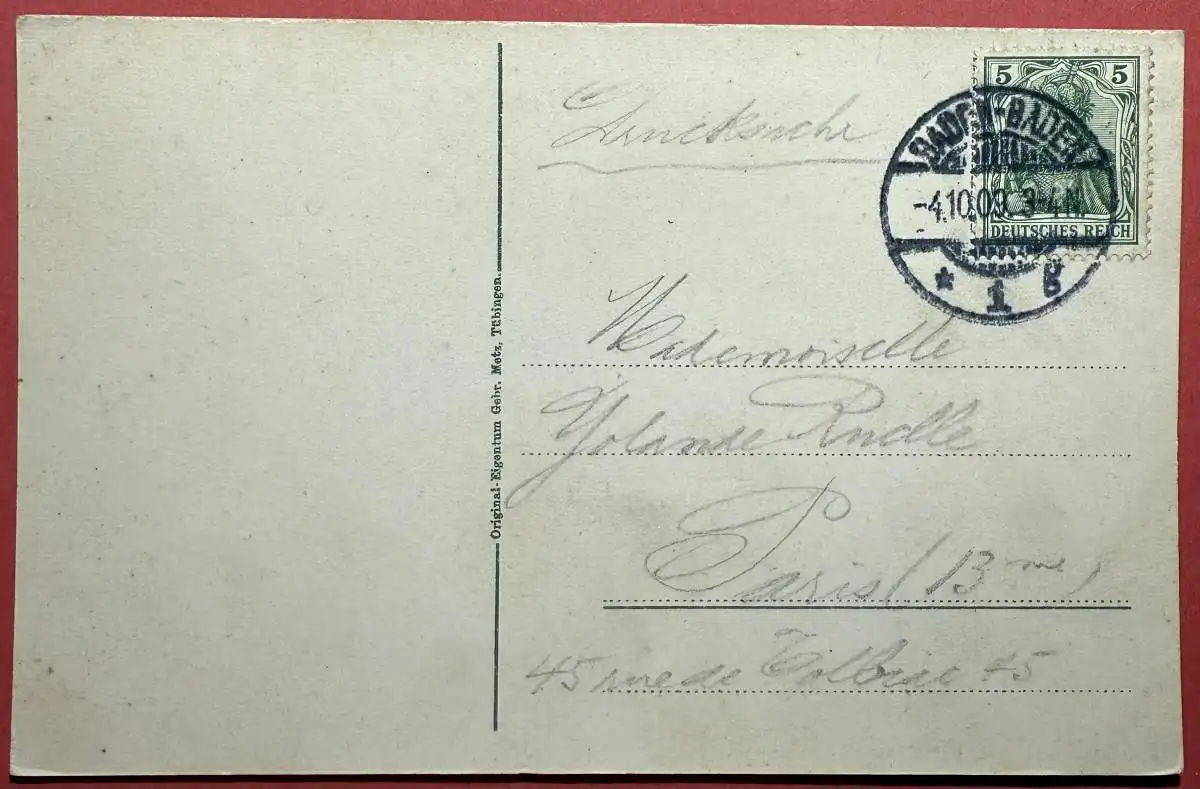 Drucksache
5 5
DEUTSCHES REICH
BADEN-BADEN
-4.10.09. 3-4 N.
* 1 g
Original-Eigentum Gebr. Metz, Tübingen.
Mademoiselle
Yolande
Paris (13me)
45 rue de Tolbiac 45